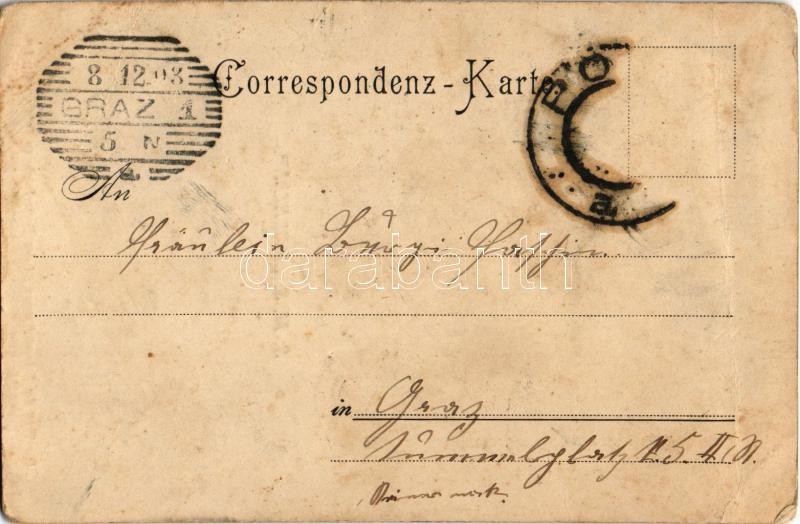 8 12 98
GRAZ 1
5 N
Correspondenz-Karte
PO
a
An
Fräulein Burgi
darabanth
in Graz
Tummelplatz N. 5. II St.